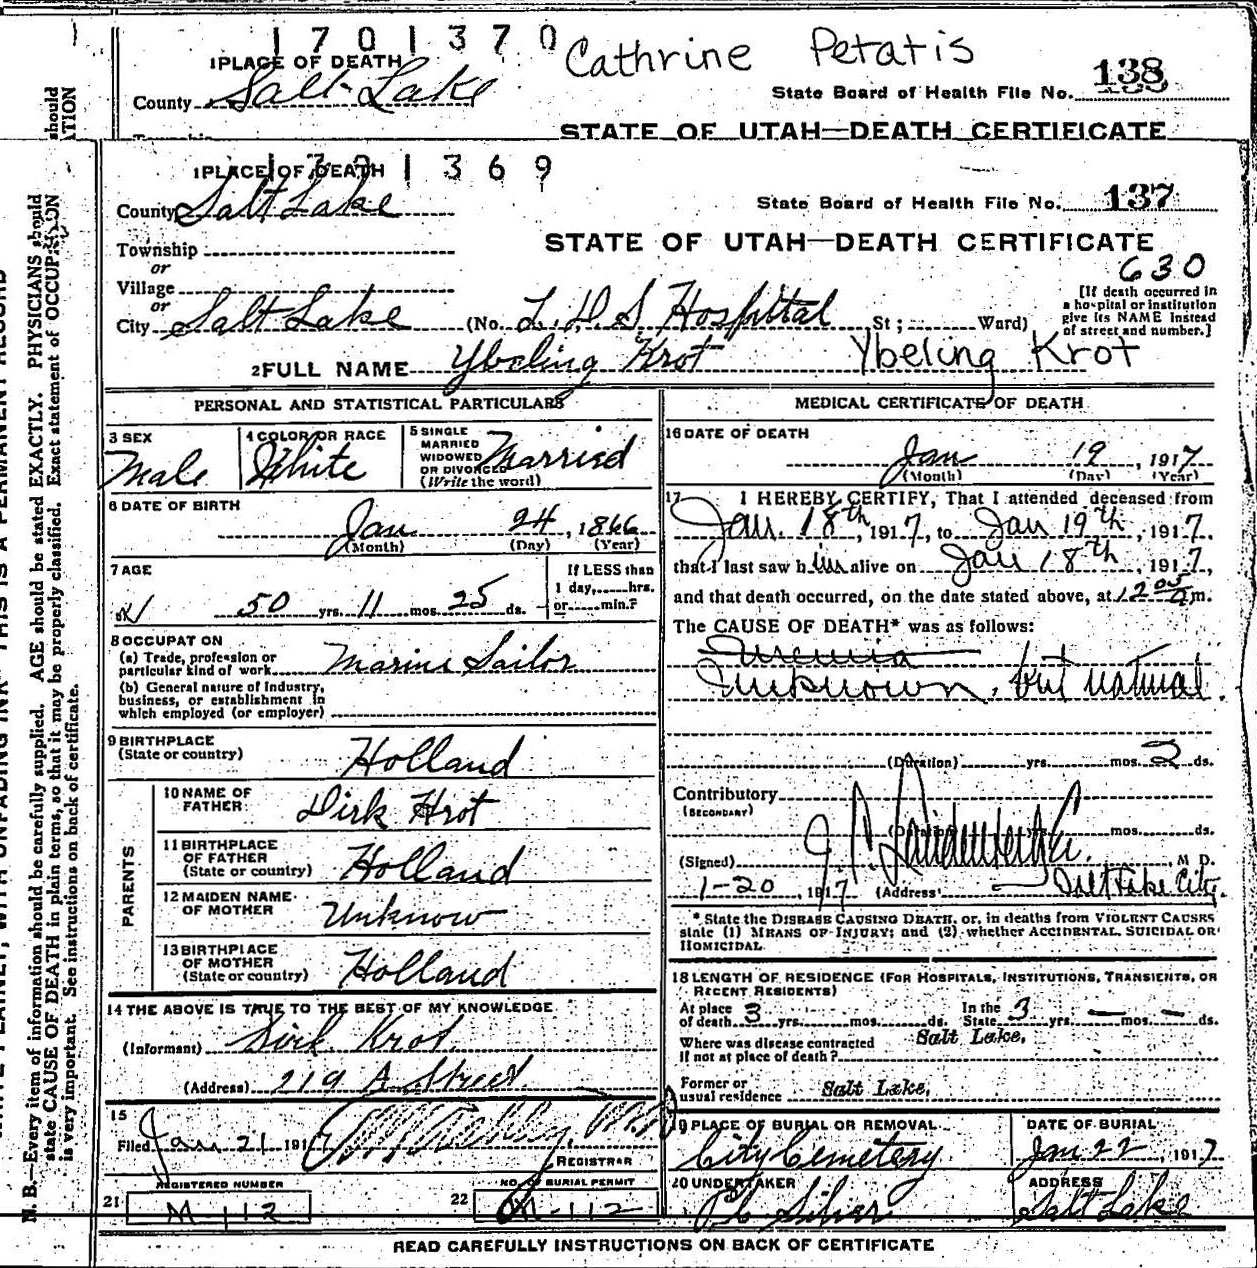 1 7 0 1 3 7 0
Cathrine Petatis
1 PLACE OF DEATH
County Salt Lake
State Board of Health File No. 138
Township
STATE OF UTAH—DEATH CERTIFICATE
1 PLACE OF DEATH 1 3 6 9
County Salt Lake
State Board of Health File No. 137
Township
STATE OF UTAH—DEATH CERTIFICATE
or
630
Village
or
[If death occurred in
a hospital or institution
give its NAME instead
of street and number.]
City Salt Lake (No. L. D. S Hospital St ; Ward)
2 FULL NAME Ybeling Krot Ybeling Krot
PERSONAL AND STATISTICAL PARTICULARS
3 SEX
Male
4 COLOR OR RACE
White
5 SINGLE
MARRIED
WIDOWED
OR DIVORCED
(Write the word)
Married
6 DATE OF BIRTH
Jan 24, 1866
(Month) (Day) (Year)
7 AGE
50 yrs. 11 mos. 25 ds.
If LESS than
1 day, hrs.
or min.?
8 OCCUPATION
(a) Trade, profession or
particular kind of work Marine Sailor
(b) General nature of Industry,
business, or establishment in
which employed (or employer)
9 BIRTHPLACE
(State or country) Holland
PARENTS
10 NAME OF
FATHER Dirk Krot
11 BIRTHPLACE
OF FATHER
(State or country) Holland
12 MAIDEN NAME
OF MOTHER Unknow
13 BIRTHPLACE
OF MOTHER
(State or country) Holland
14 THE ABOVE IS TRUE TO THE BEST OF MY KNOWLEDGE
(Informant) Dirk Krot
(Address) 219 A Street
15
Filed Jan 21 1917
REGISTRAR
REGISTERED NUMBER
21 M-112
NO. OF BURIAL PERMIT
22 M-112
MEDICAL CERTIFICATE OF DEATH
16 DATE OF DEATH
Jan 19, 1917
(Month) (Day) (Year)
17 I HEREBY CERTIFY, That I attended deceased from
Jan. 18th, 1917, to Jan 19th, 1917,
that I last saw him alive on Jan 18th, 1917,
and that death occurred, on the date stated above, at 12 05 a m.
The CAUSE OF DEATH* was as follows:
Uremia
Unknown, but natural.
(Duration) yrs. mos. 2 ds.
Contributory
(SECONDARY)
(Duration) yrs. mos. ds.
(Signed) M D.
1-20, 1917 (Address) Salt Lake City.
* State the DISEASE CAUSING DEATH, or, in deaths from VIOLENT CAUSES
state (1) MEANS OF INJURY; and (2) whether ACCIDENTAL, SUICIDAL OR
HOMICIDAL
18 LENGTH OF RESIDENCE (FOR HOSPITALS, INSTITUTIONS, TRANSIENTS, OR
RECENT RESIDENTS)
At place
of death 3 yrs. mos. ds.
In the
State 3 yrs. — mos. — ds.
Where was disease contracted
if not at place of death? Salt Lake,
Former or
usual residence Salt Lake,
19 PLACE OF BURIAL OR REMOVAL
City Cemetery
DATE OF BURIAL
Jan 22, 1917
20 UNDERTAKER
ADDRESS
Salt Lake
READ CAREFULLY INSTRUCTIONS ON BACK OF CERTIFICATE
N. B.—Every item of information should be carefully supplied. AGE should be stated EXACTLY. PHYSICIANS should
state CAUSE OF DEATH in plain terms, so that it may be properly classified. Exact statement of OCCUPATION
is very important. See instructions on back of certificate.